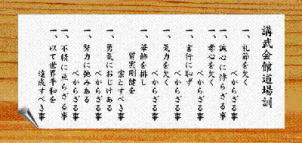 講武会館道場訓
一、礼節を欠く
べからざる事
一、誠心に悖らざる事
一、孝心を欠く
べからざる事
一、言行に恥ず
べからざる事
一、気力を欠く
べからざる事
一、華飾を排し
質実剛健を
宗とすべき事
一、勇気におじけある
べからざる事
一、努力に弛みある
べからざる事
一、不撓に亘らざる事
一、以て世界平和を
達成すべき事